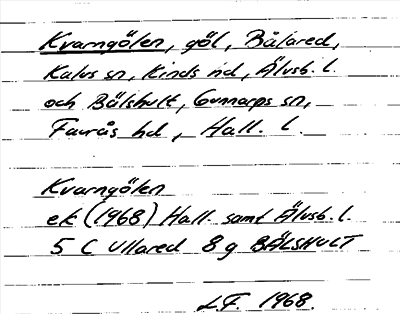 Kvarngölen, göl, Bälared,
Kalvs sn, Kinds hd, Älvsb. l.
och Bälshult, Gunnarps sn,
Faurås hd, Hall. l.
Kvarngölen
ek (1968) Hall. samt Älvsb. l.
5 C Ullared 8 g BÄLSHULT
L.F. 1968.